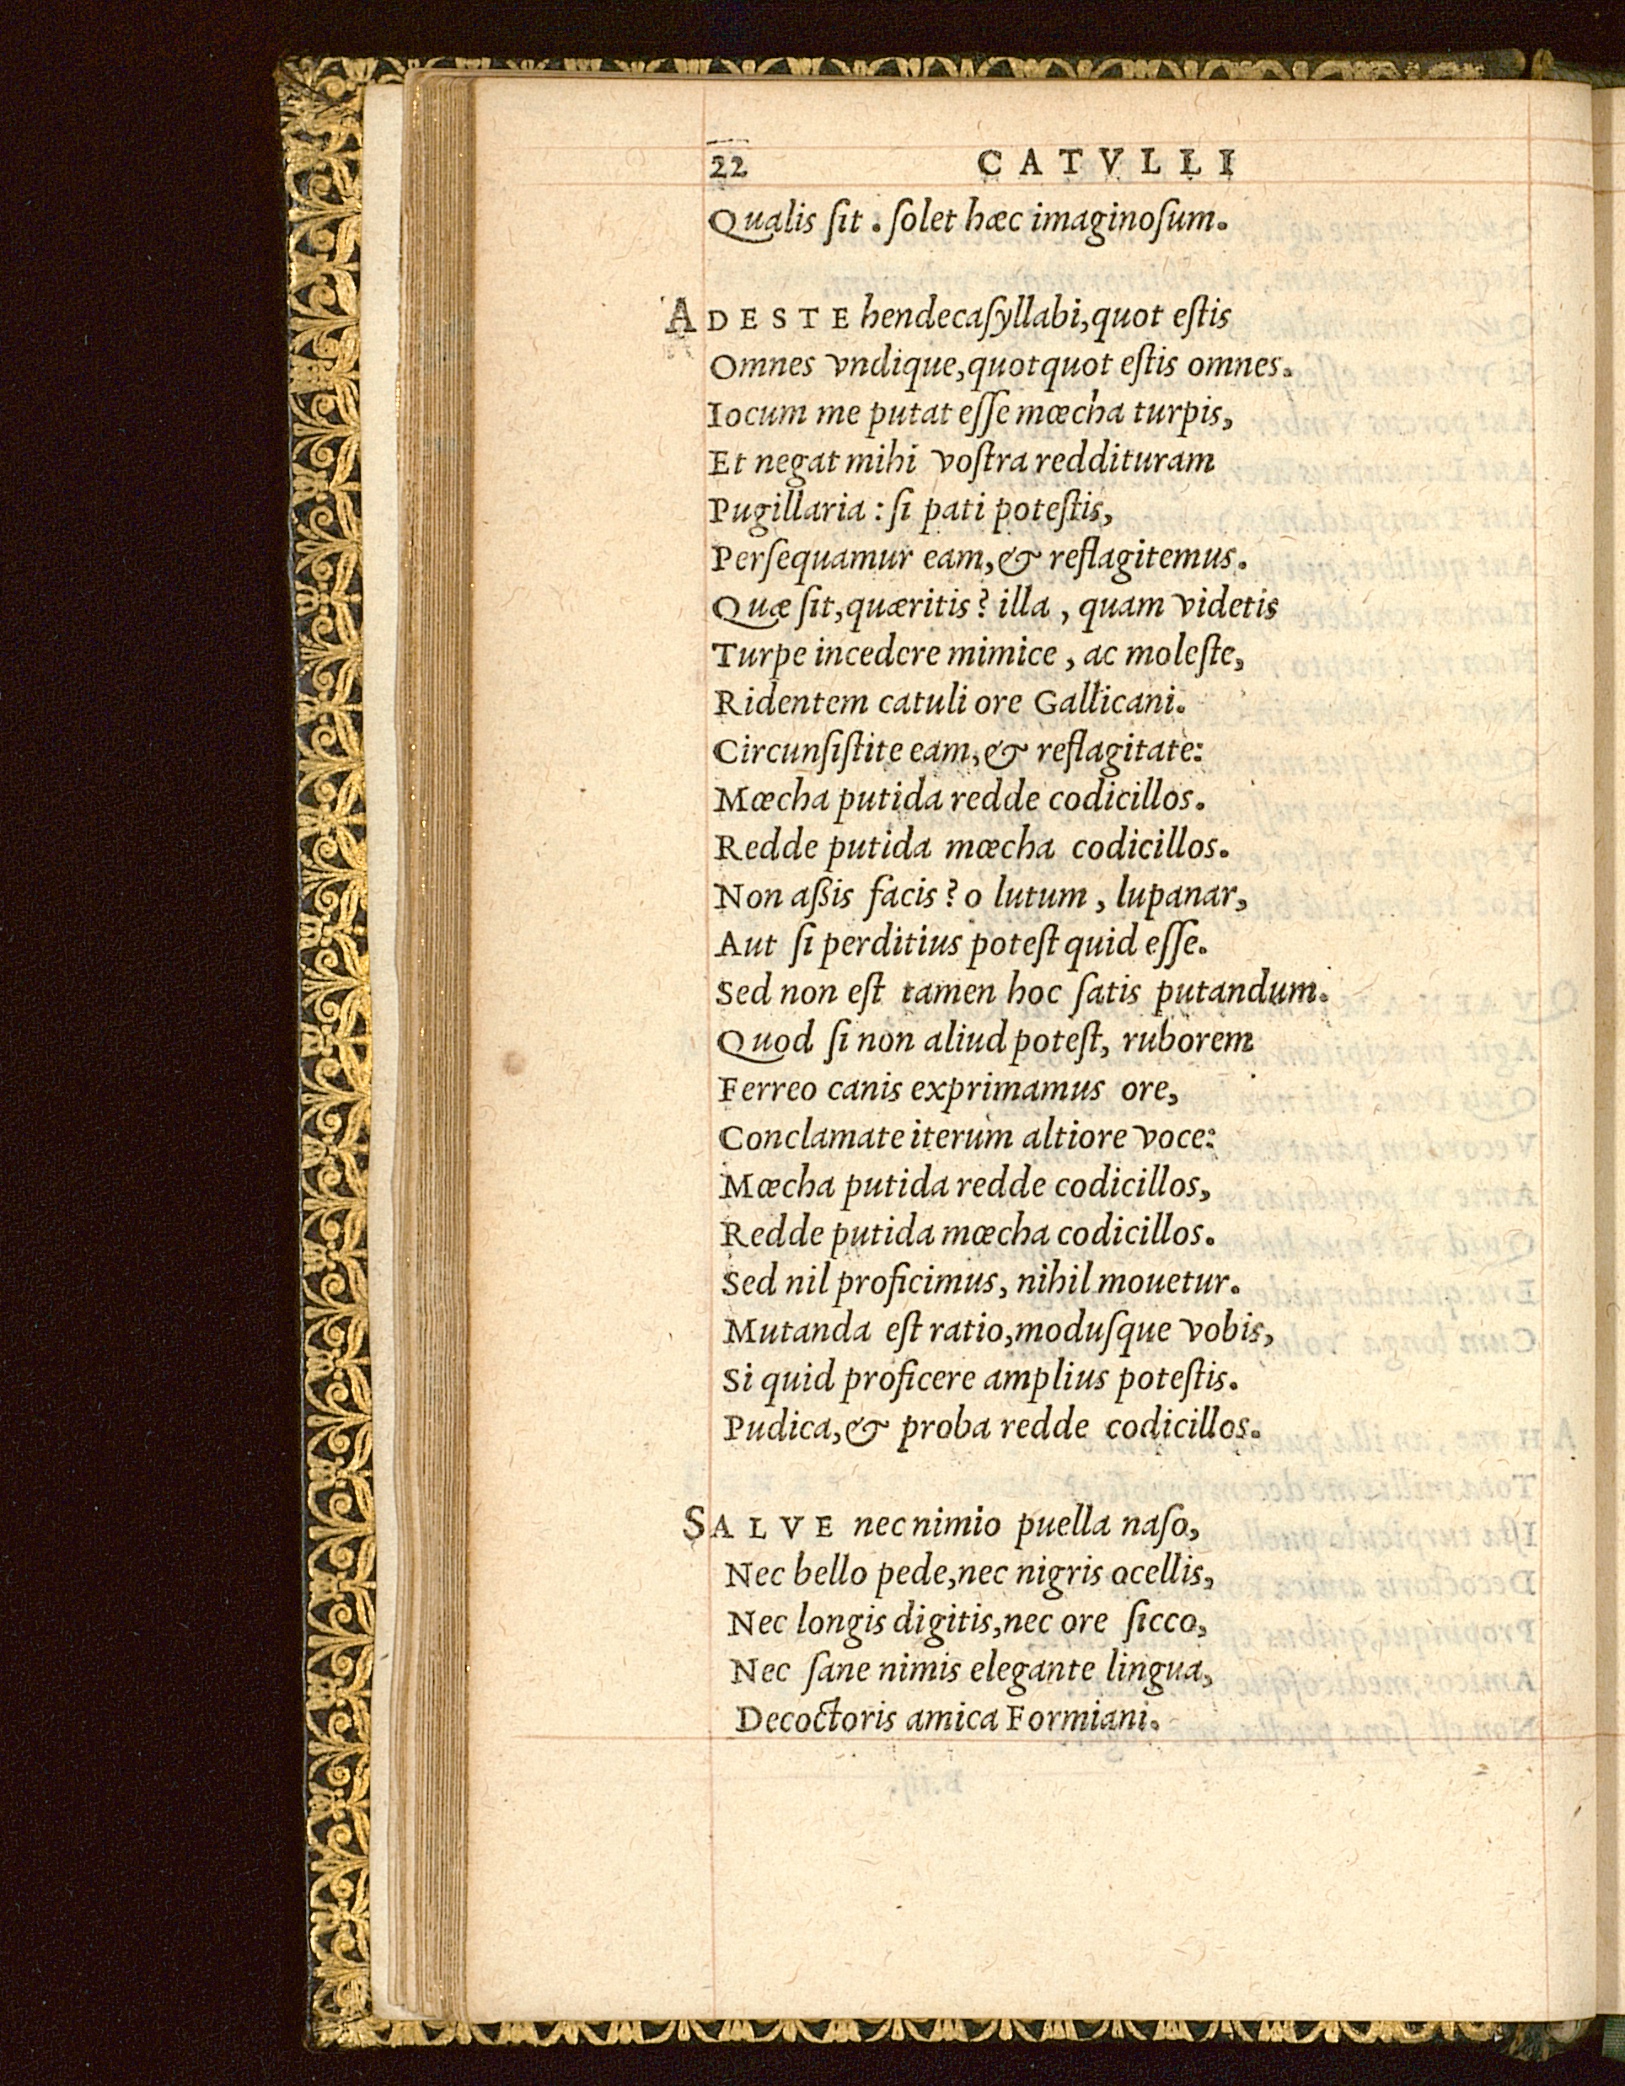 22 CATVLLI
Qualis ſit . ſolet hæc imaginoſum.
ADESTE hendecaſyllabi, quot eſtis
Omnes vndique, quotquot eſtis omnes.
Iocum me putat eſſe mœcha turpis,
Et negat mihi voſtra reddituram
Pugillaria : ſi pati poteſtis,
Perſequamur eam, & reflagitemus.
Quæ ſit, quæritis? illa , quam videtis
Turpe incedere mimice , ac moleſte,
Ridentem catuli ore Gallicani.
Circunſiſtite eam, & reflagitate:
Mœcha putida redde codicillos.
Redde putida mœcha codicillos.
Non aßis facis? o lutum , lupanar,
Aut ſi perditius poteſt quid eſſe.
Sed non eſt tamen hoc ſatis putandum.
Quod ſi non aliud poteſt, ruborem
Ferreo canis exprimamus ore,
Conclamate iterum altiore voce:
Mœcha putida redde codicillos,
Redde putida mœcha codicillos.
Sed nil proficimus, nihil mouetur.
Mutanda eſt ratio, moduſque vobis,
Si quid proficere amplius poteſtis.
Pudica, & proba redde codicillos.
SALVE nec nimio puella naſo,
Nec bello pede, nec nigris ocellis,
Nec longis digitis, nec ore ſicco,
Nec ſane nimis elegante lingua,
Decoctoris amica Formiani.